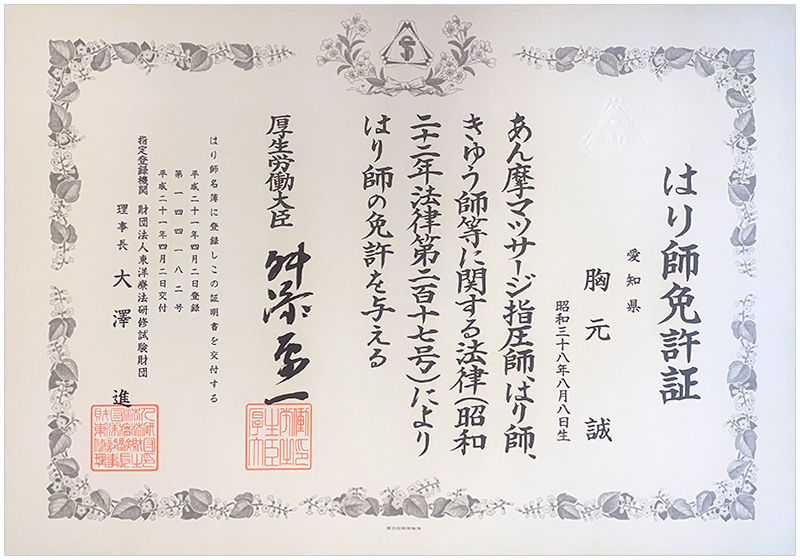 はり師免許証
愛知県
胸元 誠
昭和三十八年八月八日生
あん摩マツサージ指圧師、はり師、
きゆう師等に関する法律(昭和
二十二年法律第二百十七号)により
はり師の免許を与える
厚生労働大臣 舛添要一
はり師名簿に登録しこの証明書を交付する
平成二十一年四月二日登録
第一四四一八二号
平成二十一年四月二日交付
指定登録機関 財団法人東洋療法研修試験財団
理事長 大澤 進